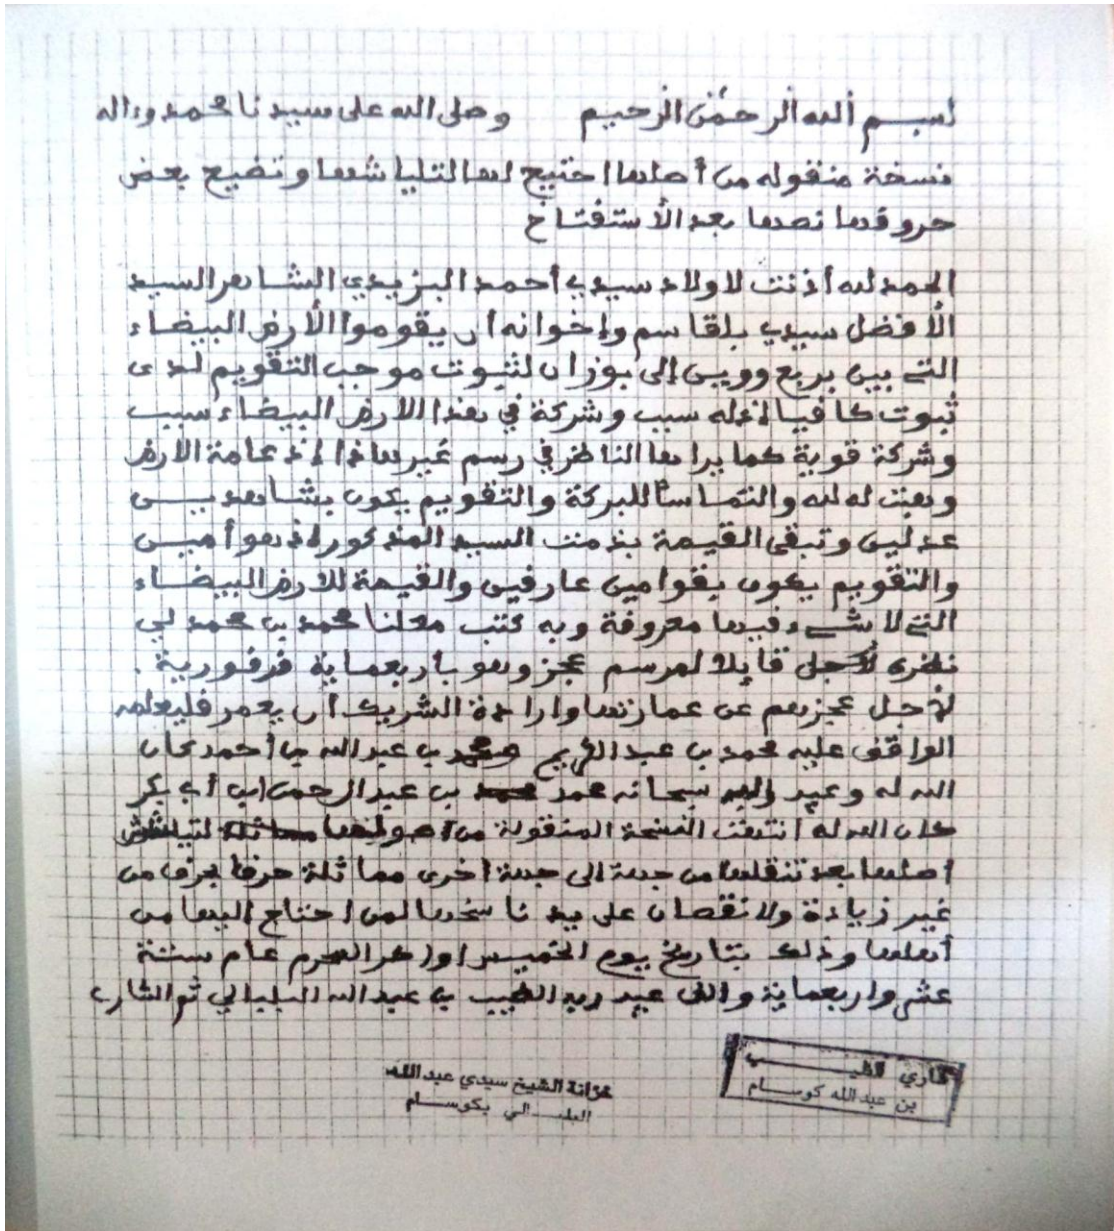 بسم الله الرحمن الرحيم وصلى الله على سيدنا محمد وءاله
نسخة منقوله من أصلها احتيج لها لتلياشها وتضيع بعض
حروفها نصها بعد الأستفتاح
الحمد لله أذنت لاولاد سيدي أحمد اليزيدي الشاهر السيد
الأفضل سيدي بلقاسم وإخوانه أن يقوموا الأرض البيضاء
التي بين بربع وويس إلى بوزان لثبوت موجب التقويم لدى
ثبوت كافيا لأنله سبب وشركة في هذا الارض البيضاء سبب
وشركة قوية كما يراها الناظر في رسم غير هاذا إذ عامة الارض
وهبت له لله والتماسا للبركة والتقويم يكون بشاهديـن
عدلين وتبقى القيمة بذمت السيد المذكور إذ هو أميـن
والتقويم يكون بقوامين عارفين والقيمة للارض البيضـاء
التي لا شـيء فيها معروفة وبه كتب معلنا محمد بن محمد لي
نظرى لأجل قايلا لمرسم عجز وهو باربعماية فرفورية .
لأجل عجزهم عن عمارتها وارادة الشريك أن يعمر فليعلمه
الواقف عليه محمد بن عبد الكريم ومحمد بن عبد الله بن أحمد كان
الله له وعبيد ربه سبحانه محمد بن عبد الرحمن ابن أبي بكر
كان الله له انتهت النسخة المنقولة من أصولها لتياش
أصلها بعد تنقلها من جهة الى جهة اخرى مماثلة حرفا بحرف من
غير زيادة ولانقصان على يد ناسخها لمن احتاج اليها من
أهلها وذلك بتاريخ يوم الخميس اواخر المحرم عام ستة
عشر واربعماية والف عبيد ربه الطيب بن عبد الله البلبالي ثم الشاري
شاري الطيـــب
بن عبد الله كوســـام
خزانة الشيخ سيدي عبد الله
البلبـــالي بكوســـام